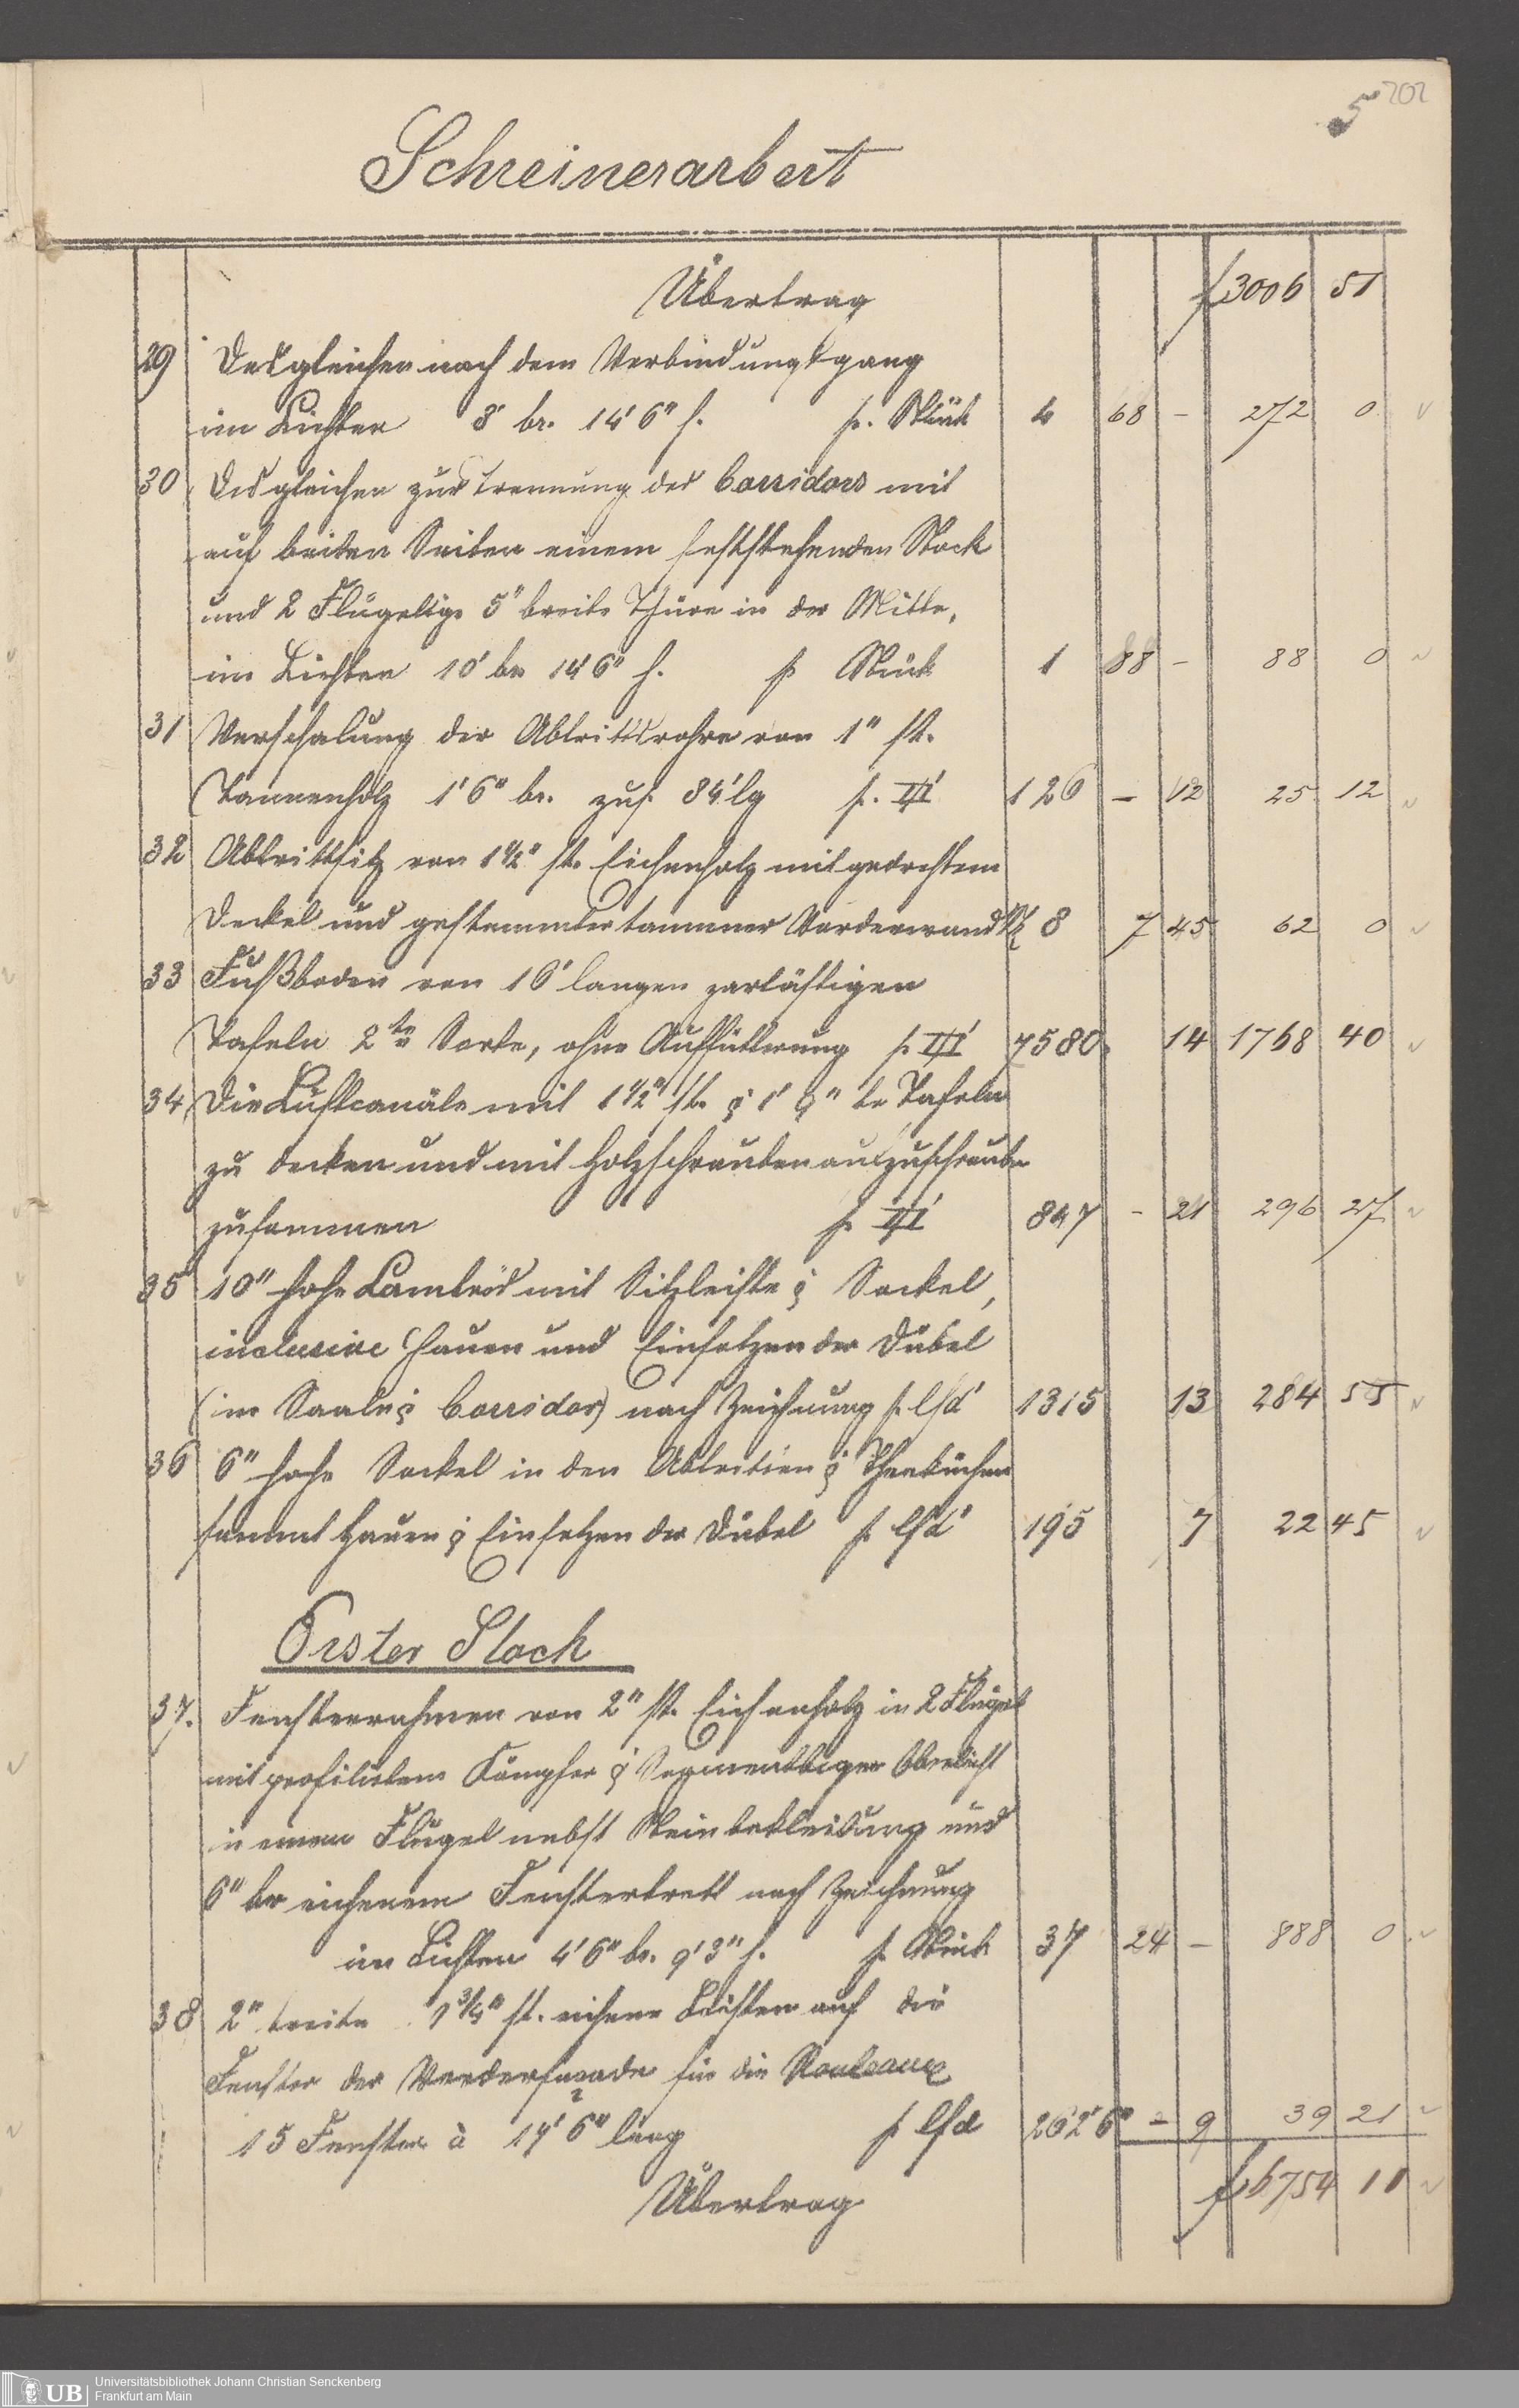 202
5
Schreinerarbeit
Übertrag f 3006 51
29 Desgleichen nach dem Verbindungsgang
im Lichten 8' br. 14' 6" h. p. Stück 4 68 - 272 0
30 Desgleichen zur Trennung des Corridors mit
auf beiden Seiten einem feststehenden Stock
und 2 Flügelige 5' breite Thüre in der Mitte,
im Lichten 10' br 14' 6" h. p Stück 1 88 - 88 0
31 Verschalung der Abtrittsrohre von 1" st.
Tannenholz 1' 6" br. zus. 84' lg p. □' 126 - 12 25 12
32 Abtrittsitz von 1 1/2" st. Eichenholz mit gedrehtem
Deckel und gestemmter tannener Vorderwand St 8 7 45 62 0
33 Fußboden von 16' langen zartästigen
Tafeln 2te Sorte, ohne Auffütterung p. □' 7580 14 1768 40
34 Die Luftcanäle mit 1 1/2" st. & 1' 9" br Tafeln
zu decken und mit Holzschrauben aufzuschrauben
zusammen p. □' 847 - 21 296 27
35 10" hohe Lambris mit Sitzleiste & Sockel,
inclusive Hauen und Einsetzen der Dübel
(im Saale & Corridor) nach Zeichnung p. lfd' 1315 13 284 55
36 6" hohe Sockel in den Abtritten & Theeküchen
sammt Hauen & Einsetzen der Dübel p. lfd' 195 7 22 45
Erster Stock
37. Fensterrahmen von 2" st. Eichenholz in 2 Flügel
mit profilirtem Kämpfer & Oberlicht
in einem Flügel nebst Steinbekleidung und
6" br eichenem Fensterbrett nach Zeichnung
im Lichten 4' 6" br. 9' 3" h. p. Stück 37 24 - 888 0
38 2" breite 1 3/4" st. eichene Leisten auf die
Fenster der Vorderfaçade für die Rouleaux
15 Fenster à 17' 6" lang p lfd 262' 6" - 9 39 21
Übertrag f 6754 11
UB Universitätsbibliothek Johann Christian Senckenberg
Frankfurt am Main